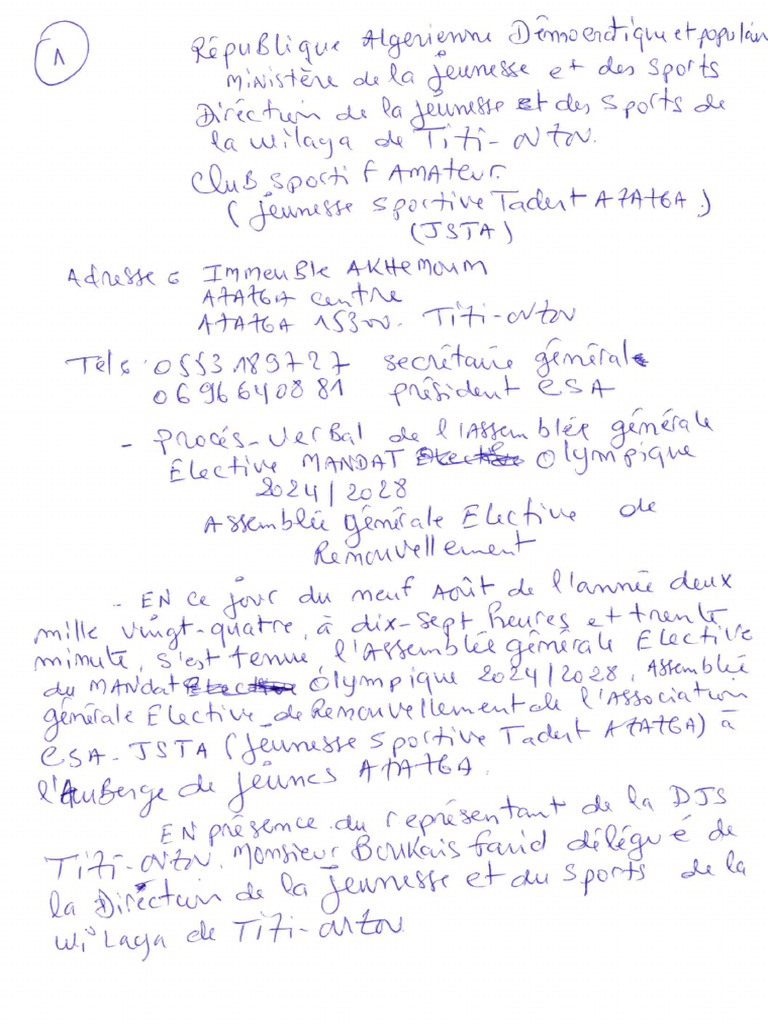 1
République Algerienne Démocratique et populair
Ministère de la jeunesse et des sports
Diréction de la jeunesse et des sports de
la wilaya de Tizi-ouzou.
Club sportif Amateur.
(jeunesse sportive Tadert AZAZGA)
(JSTA)
Adresse : Immeuble AKHemoum
AZAZGA centre
AZAZGA 15300. Tizi-ouzou
Téls : 0553189727 secrétaire général
0696640881 président CSA
- Procés-verbal de l'Assemblée générale
Elective MANDAT Olympique
2024/2028
Assemblée générale Elective de
Renouvellement
- EN ce jour du neuf Août de l'année deux
mille vingt-quatre, à dix-sept heures et trente
minute, s'est tenue l'Assemblée générale Elective
du MANdat Olympique 2024/2028, Assemblée
générale Elective de Renouvellement de l'Association
CSA-JSTA (jeunesse sportive Tadert AZAZGA) à
l'Auberge de jeunes AZAZGA.
EN présence du représentant de la DJS
Tizi-ouzou. Monsieur Boukais farid délégué de
la Diréction de la jeunesse et du sports de la
wilaya de Tizi-ouzou